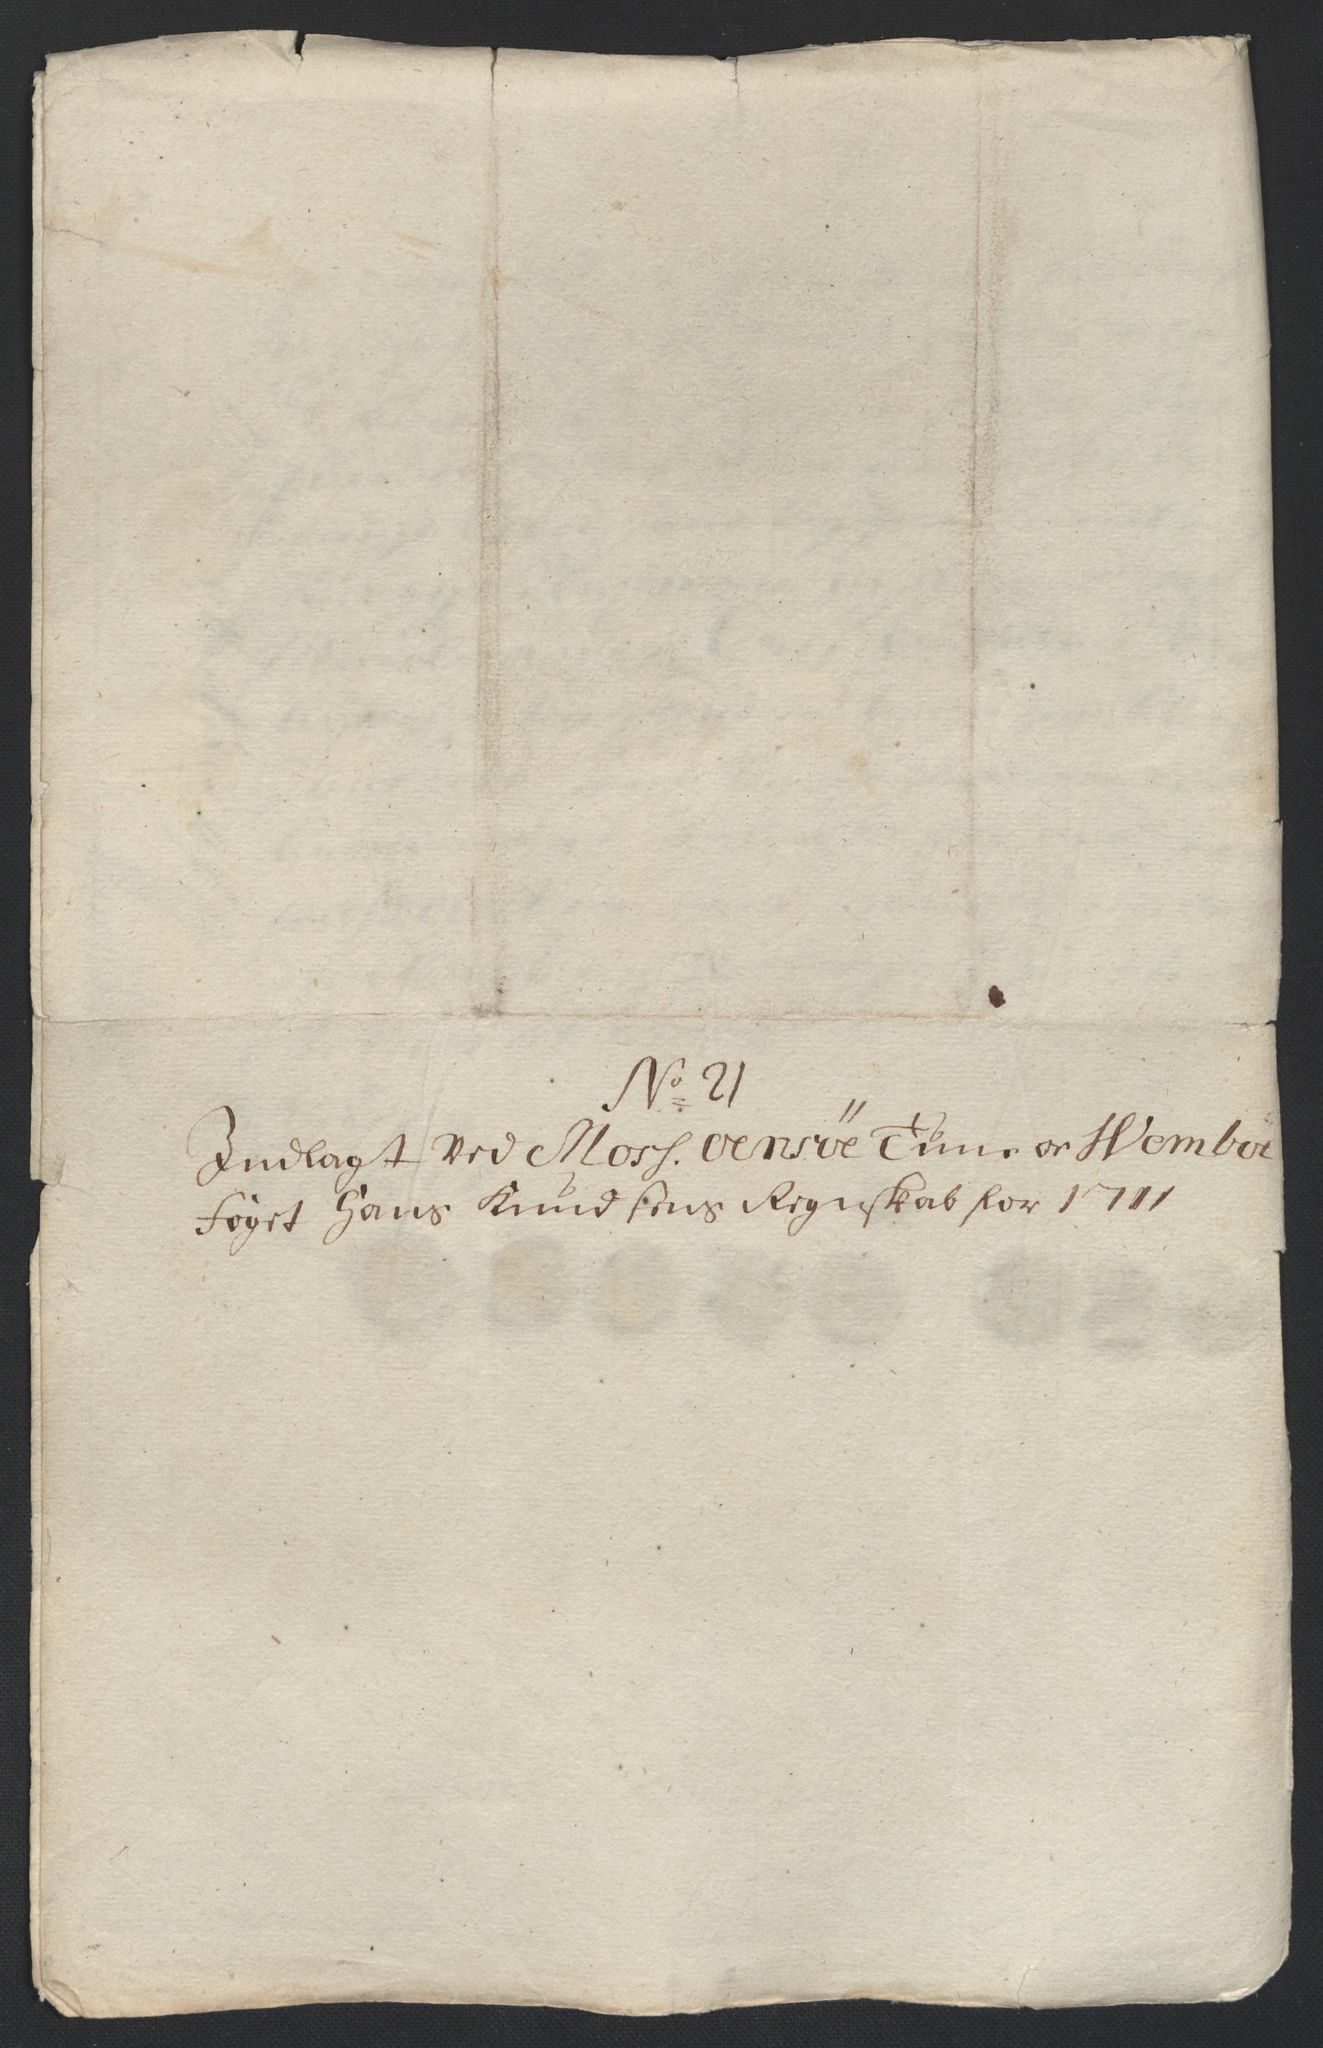 No 21
Indlagt Ved Moss. oensöe Tune oc Wemböe
foget Hans Knudsens Regnskab for 1711